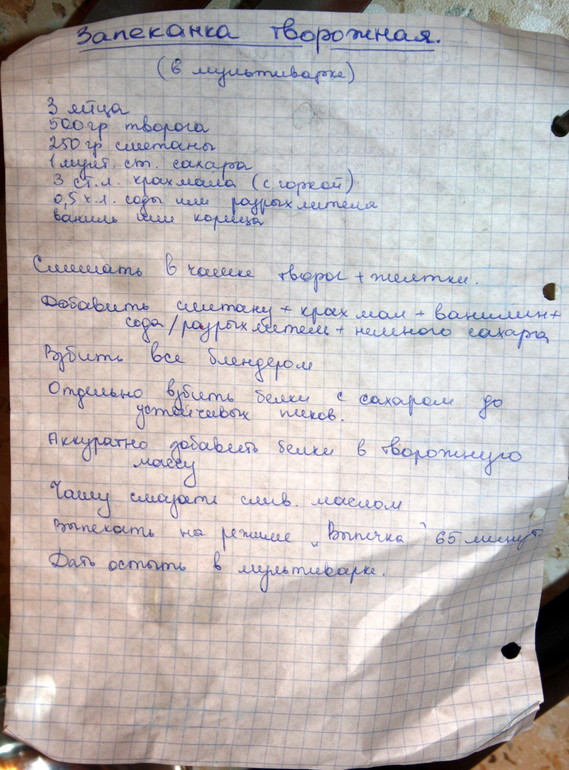 Запеканка творожная.
(в мультиварке)
3 яйца
500гр творога
250гр сметаны
1 мульт. ст. сахара
3 ст.л. крахмала (с горкой)
0,5 ч.л. соды или разрыхлителя
ваниль или корица
Смешать в чашке творог + желтки.
Добавить сметану + крахмал + ванилин +
сода/разрыхлител + немного сахара
Взбить все блендером
Отдельно взбить белки с сахаром до
устойчивых пиков.
Аккуратно добавить белки в творожную
массу
Чашу смазать слив. маслом
Выпекать на режиме „Выпечка" 65 минут
Дать остыть в мультиварке.